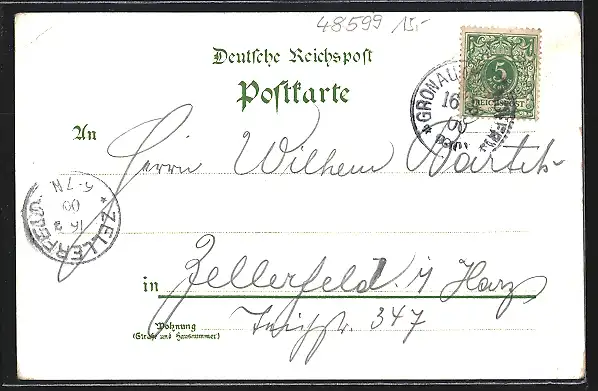 48599 15.-
Deutsche Reichspost
Postkarte
5
REICHSPOST
* GRONAU
16
00
An
Herrn Wilhelm Bartels
* ZELLERFELD
16 3
00
6-7N
in Zellerfeld i/Harz
Teichstr. 347
Wohnung
(Straße und Hausnummer)